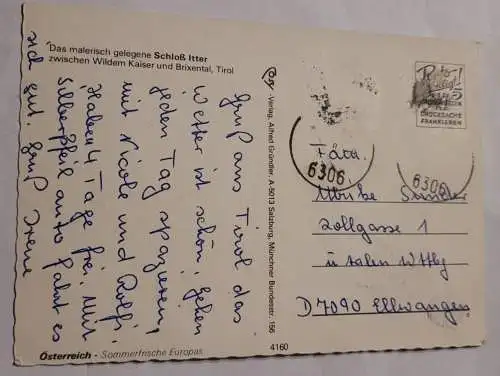 Das malerisch gelegene Schloß Itter
zwischen Wildem Kaiser und Brixental, Tirol
Gruß aus Tirol das
Wetter ist schön. gehen
jeden Tag spazieren,
mit Nicole und Rolfi.
Haben 4 Tage frei. Mit
Silberpfeil auto fahrt es
sich gut. Gruß Irene
Österreich - Sommerfrische Europas
Verlag, Alfred Gründler, A-5013 Salzburg, Münchner Bundesstr. 156
4160
DRUCKSACHE
FRANKIEREN
6306
6306
Fam.
Sünder
Zollgasse 1
D 7090 Ellwangen